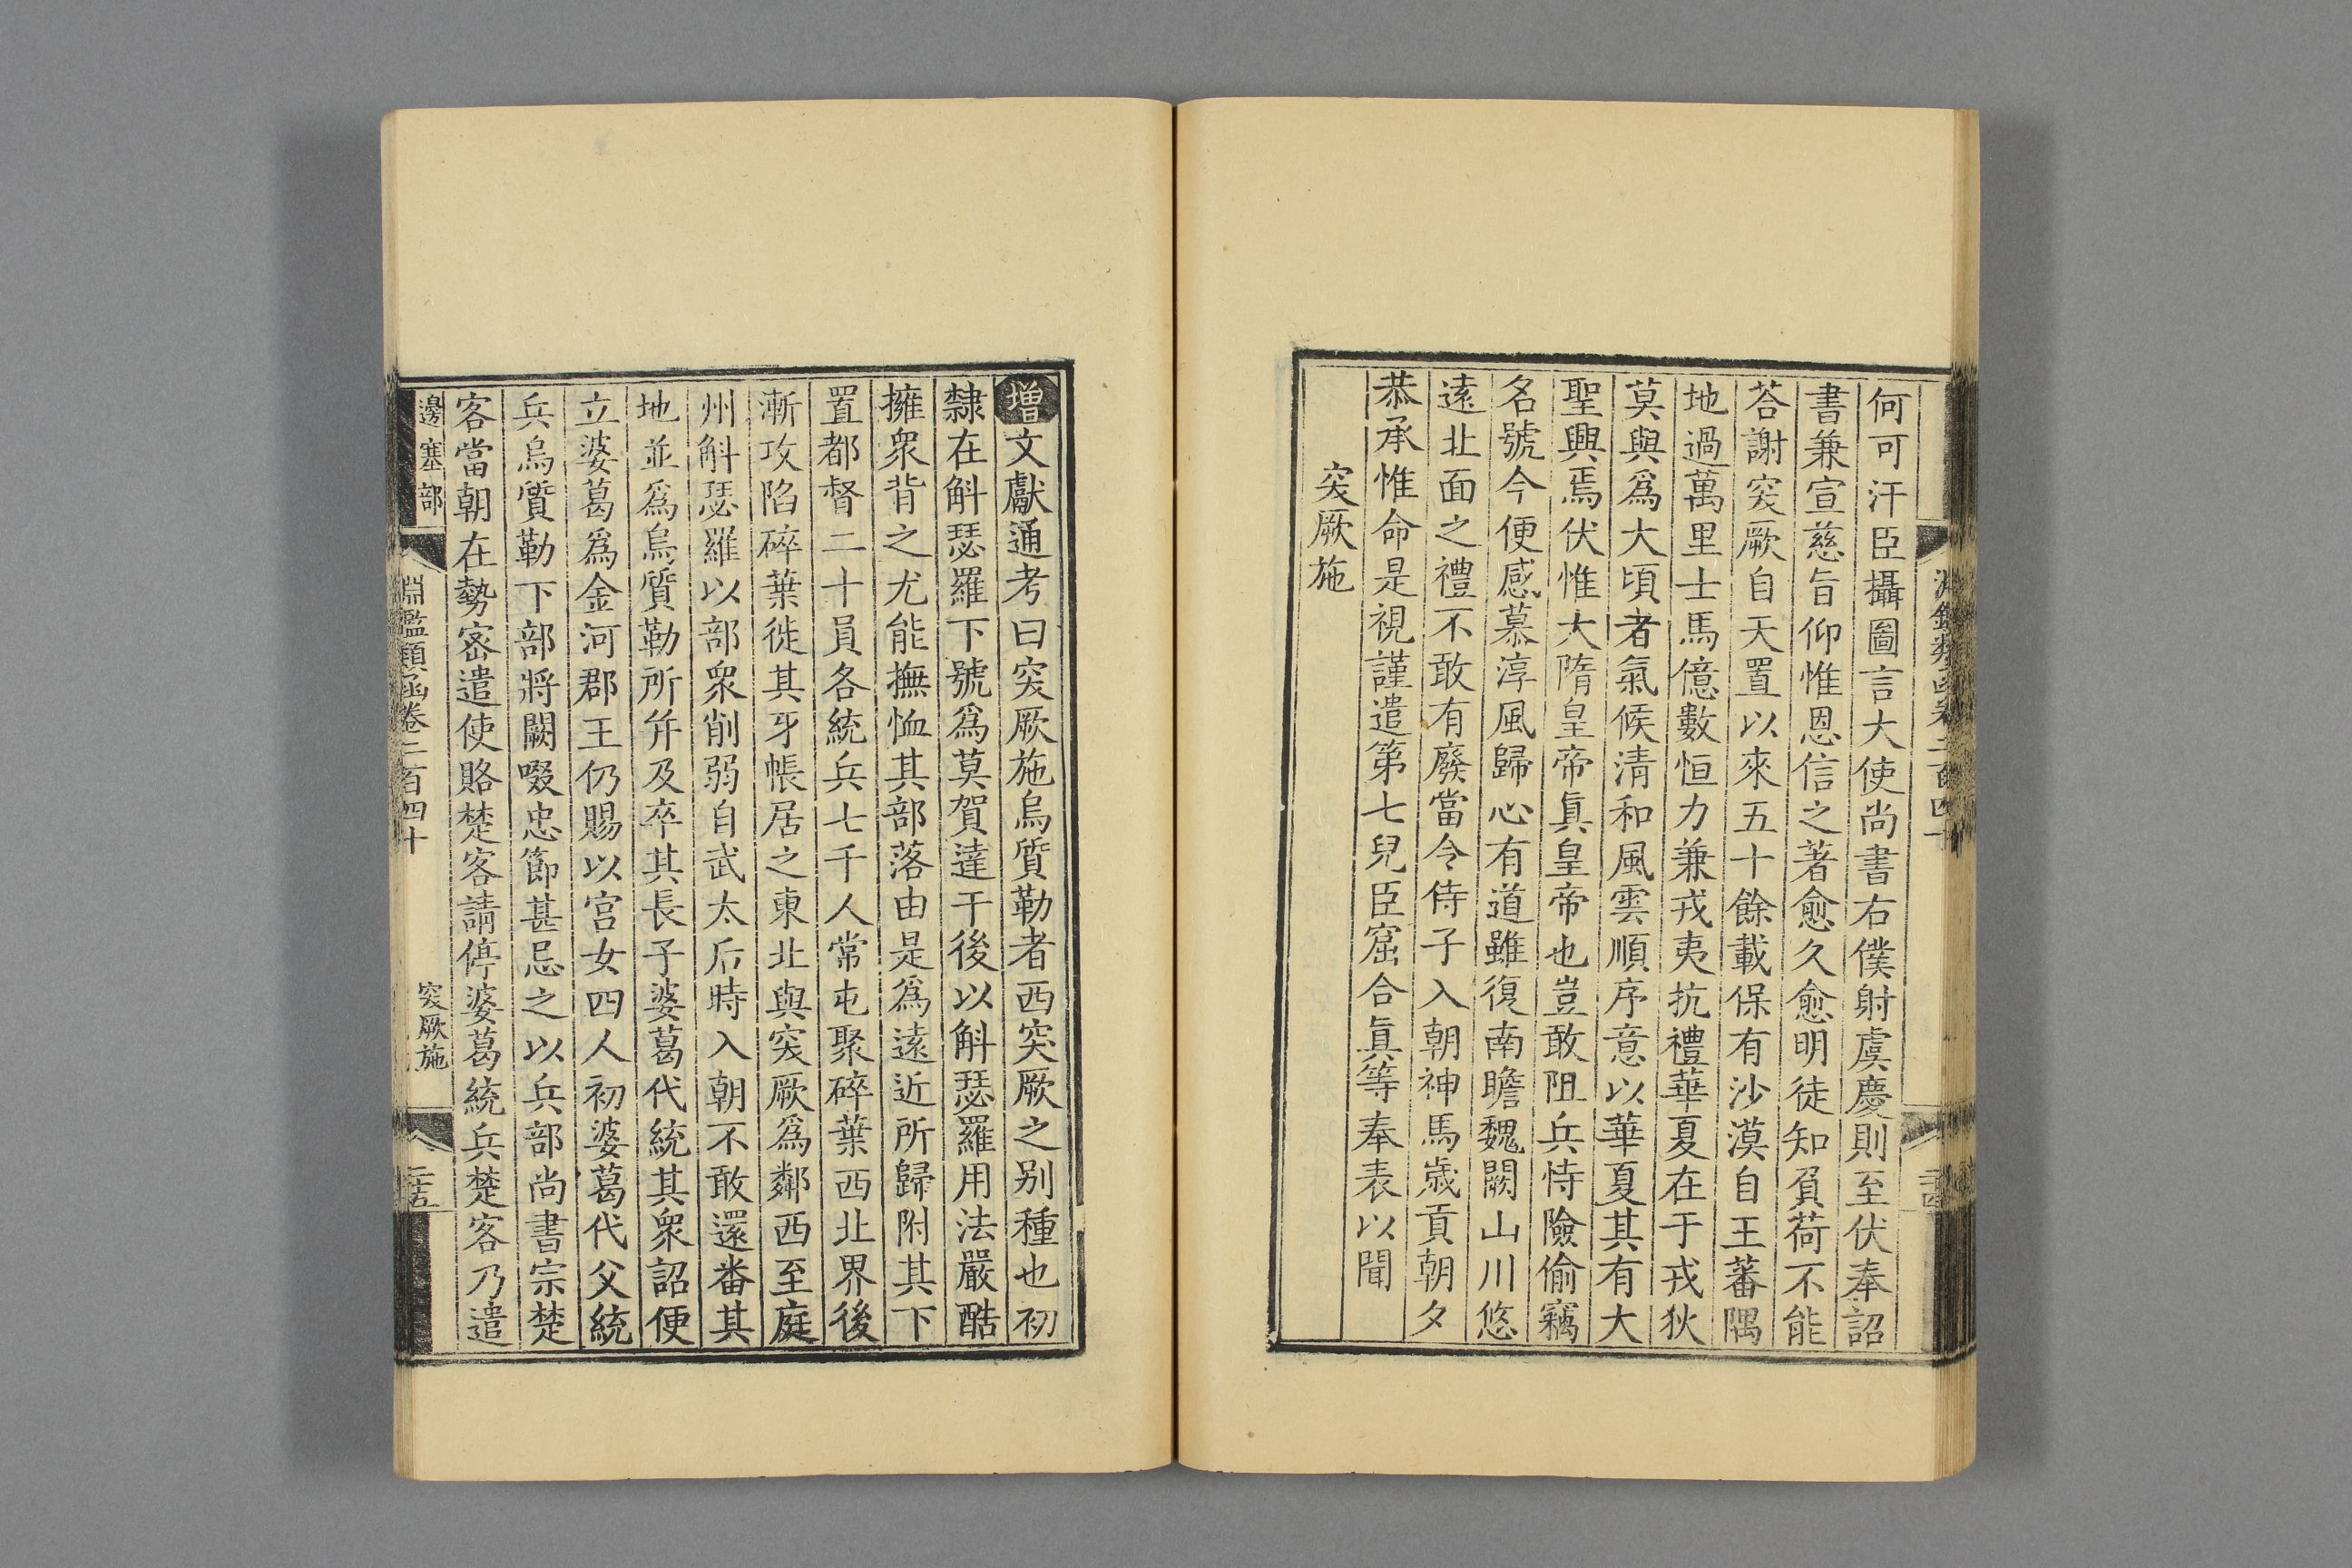 淵鑑類函卷二百四十
何可汗臣攝圖言大使尚書右僕射虞慶則至伏奉詔
書兼宣慈旨仰惟恩信之著愈久愈明徒知負荷不能
荅謝突厥自天置以來五十餘載保有沙漠自王蕃隅
地過萬里士馬億數恒力兼戎夷抗禮華夏在于戎狄
莫與爲大頃者氣候清和風雲順序意以華夏其有大
聖興焉伏惟大隋皇帝眞皇帝也豈敢阻兵恃險偷竊
名號今便感慕淳風歸心有道雖復南瞻魏闕山川悠
遠北面之禮不敢有廢當令侍子入朝神馬歲貢朝夕
恭承惟命是視謹遣第七兒臣窟合眞等奉表以聞
突厥施
增文獻通考曰突厥施烏質勒者西突厥之别種也初
隸在斛瑟羅下號爲莫賀達干後以斛瑟羅用法嚴酷
擁衆背之尤能撫恤其部落由是爲遠近所歸附其下
置都督二十員各統兵七千人常屯聚碎葉西北界後
漸攻陷碎葉徙其牙帳居之東北與突厥爲鄰西至庭
州斛瑟羅以部衆削弱自武太后時入朝不敢還蕃其
地並爲烏質勒所并及卒其長子婆葛代統其衆詔便
立婆葛爲金河郡王仍賜以宫女四人初婆葛代父統
兵烏質勒下部將闕啜忠節甚忌之以兵部尚書宗楚
客當朝在勢宻遣使賂楚客請停婆葛統兵楚客乃遣
邊塞部
淵鑑類函卷二百四十
突厥施
二十五